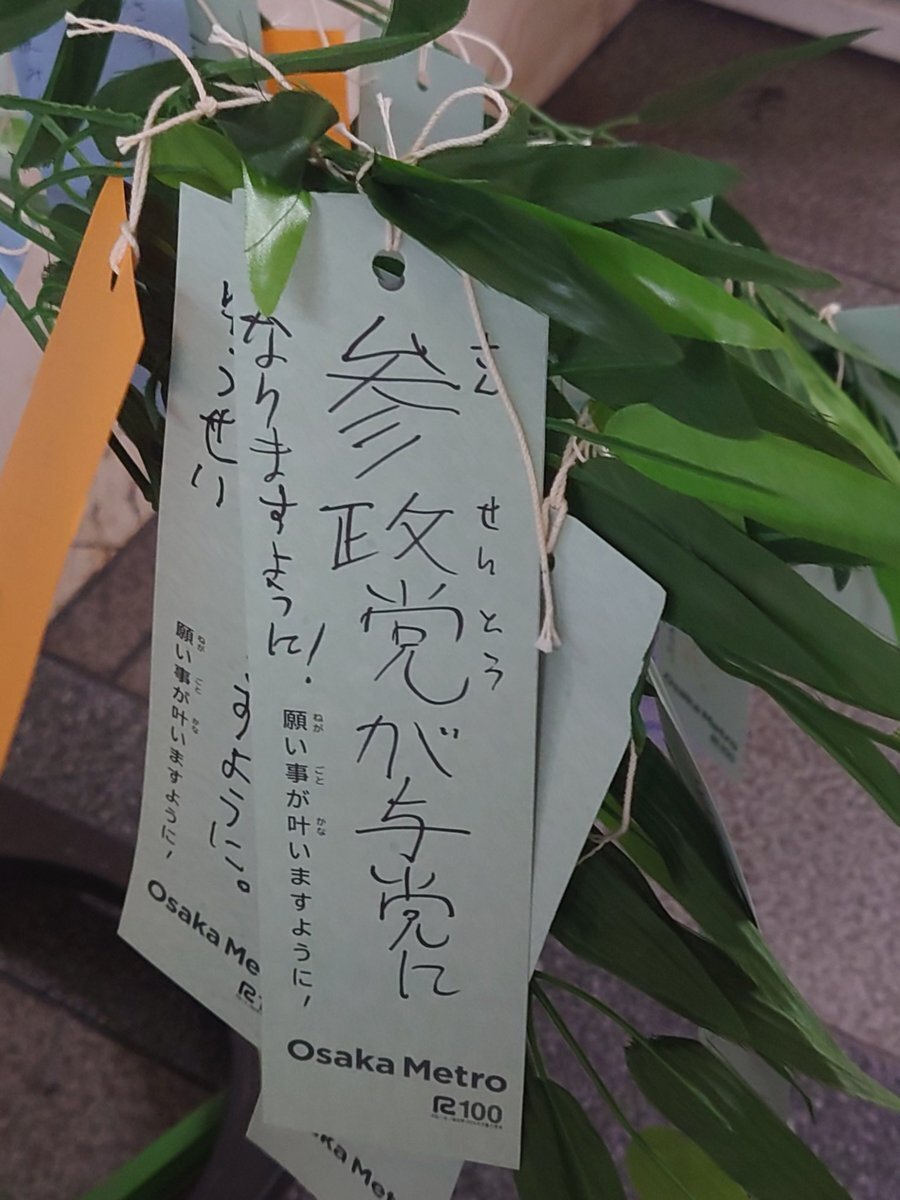 さんせいとう
参政党が与党に
なりますように!
願い事が叶いますように!
ねがごとかな
Osaka Metro
R100
すように。
願い事が叶いますように!
ねがごとかな
Osaka Me